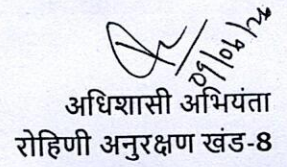 09/06/26
अधिशासी अभियंता
रोहिणी अनुरक्षण खंड-8